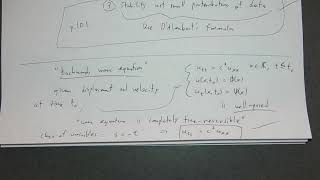 ① Stability wrt small perturbation of data
p. 10.1
Use D'Alembert's formula
"Backwards wave equation"
given displacement and velocity
at time t₀
{ u_tt = c² u_xx x ∈ ℝ, t ≤ t₀
u(x,t₀) = Φ(x)
u_t(x,t₀) = Ψ(x)
is well-posed
"wave equation is completely time-reversible"
change of variables s = -t ⇒ u_ss = c² u_xx